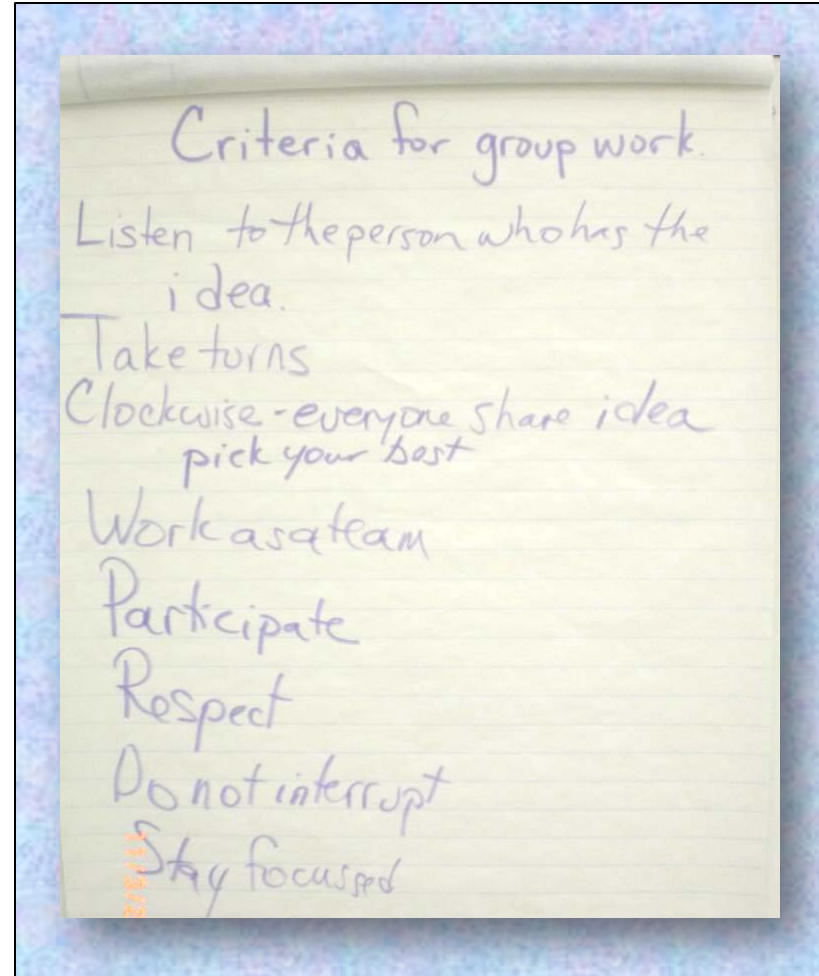 Criteria for group work.
Listen to the person who has the
idea.
Take turns
Clockwise - everyone share idea
pick your best
Work as a team
Participate
Respect
Do not interrupt
Stay focussed